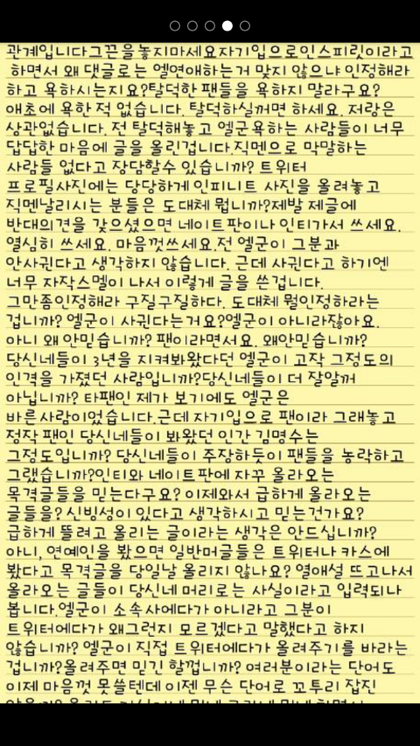 관계입니다그끈을놓지마세요자기입으로인스피릿이라고
하면서 왜 댓글로는 엘연애하는거 맞지 않으냐 인정해라
하고 욕하시는지요?탈덕한 팬들을 욕하지 말라구요?
애초에 욕한적 없습니다. 탈덕하실꺼면 하세요. 저랑은
상관없습니다. 전 탈덕해놓고 엘군욕하는 사람들이 너무
답답한 마음에 글을 올린겁니다.직멘으로 막말하는
사람들 없다고 장담할수 있습니까? 트위터
프로필사진에는 당당하게 인피니트 사진을 올려놓고
직멘날리시는 분들은 도대체 뭡니까?제발 제글에
반대의견을 갖으셨으면 네이트판이나 인티가서 쓰세요.
열심히 쓰세요. 마음껏쓰세요.전 엘군이 그분과
안사귄다고 생각하지 않습니다. 근데 사귄다고 하기엔
너무 자작스멜이 나서 이렇게 글을 쓴겁니다.
그만좀인정해라 구질구질하다. 도대체 뭘인정하라는
겁니까? 엘군이 사귄다는거요?엘군이 아니라잖아요.
아니 왜 안믿습니까? 팬이라면서요. 왜안믿습니까?
당신네들이 3년을 지켜봐왔다던 엘군이 고작 그정도의
인격을 가졌던 사람입니까?당신네들이 더 잘알꺼
아닙니까? 타팬인 제가 보기에도 엘군은
바른사람이었습니다.근데 자기입으로 팬이라 그래놓고
정작 팬인 당신네들이 봐왔던 인간 김명수는
그정도입니까? 당신네들이 주장하듯이 팬들을 농락하고
그랬습니까?인티와 네이트판에 자꾸 올라오는
목격글들을 믿는다구요? 이제와서 급하게 올라오는
글들을? 신빙성이 있다고 생각하시고 믿는건가요?
급하게 뜰려고 올리는 글이라는 생각은 안드십니까?
아니, 연예인을 봤으면 일반머글들은 트위터나 카스에
봤다고 목격글을 당일날 올리지 않나요? 열애설 뜨고나서
올라오는 글들이 당신네 머리로는 사실이라고 입력되나
봅니다.엘군이 소속사에다가 아니라고 그분이
트위터에다가 왜그런지 모르겠다고 말했다고 하지
않습니까? 엘군이 직접 트위터에다가 올려주기를 바라는
겁니까?올려주면 믿긴 할껍니까? 여러분이라는 단어도
이제 마음껏 못쓸텐데 이젠 무슨 단어로 꼬투리 잡진